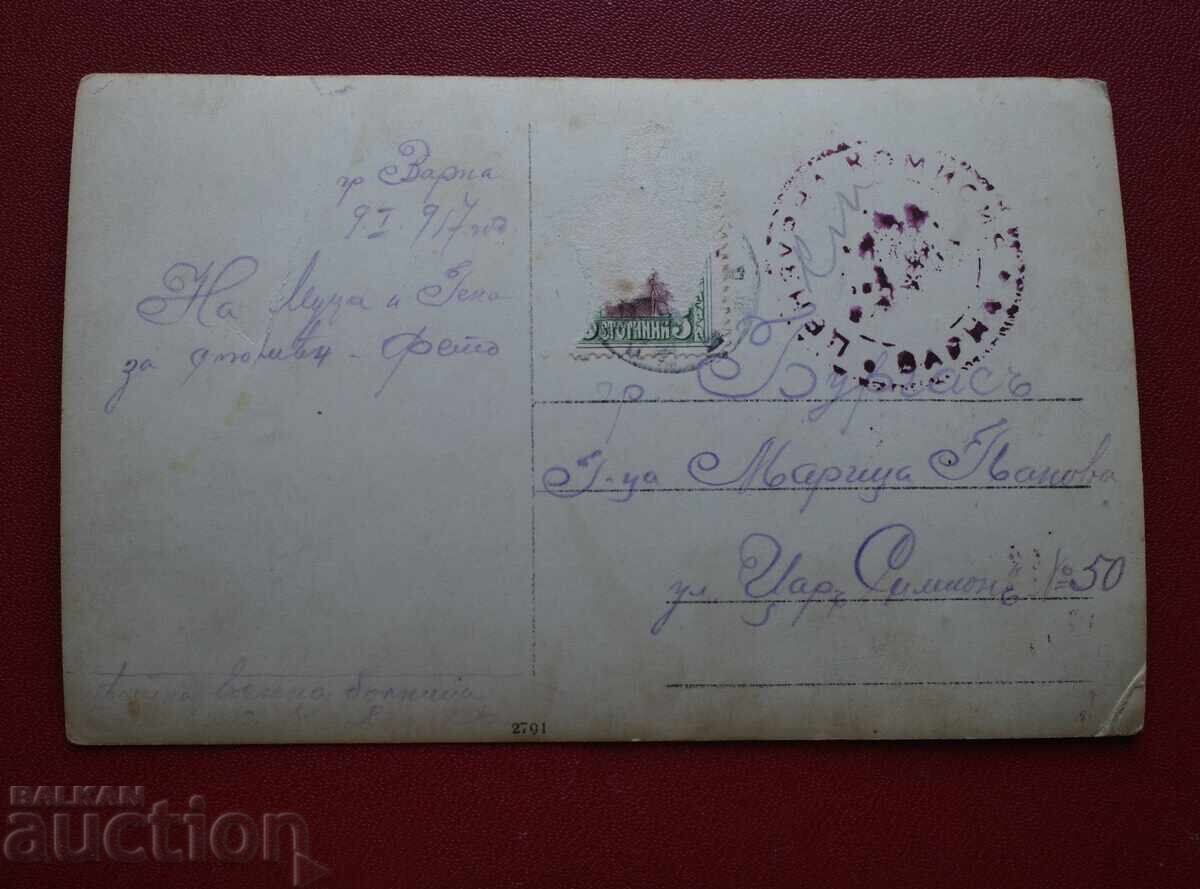 гр Варна
9. I. 917 год
На Муца и Гена
за спомен - Фето
Военна болница
СТОТИНКИ 5
ЦЕНЗУРНА КОМИСИЯ
ВАРНА
гр. Бургасъ
Г-ца Марица Панова
ул. Царъ Симеонъ № 50
2791
BALKAN
auction